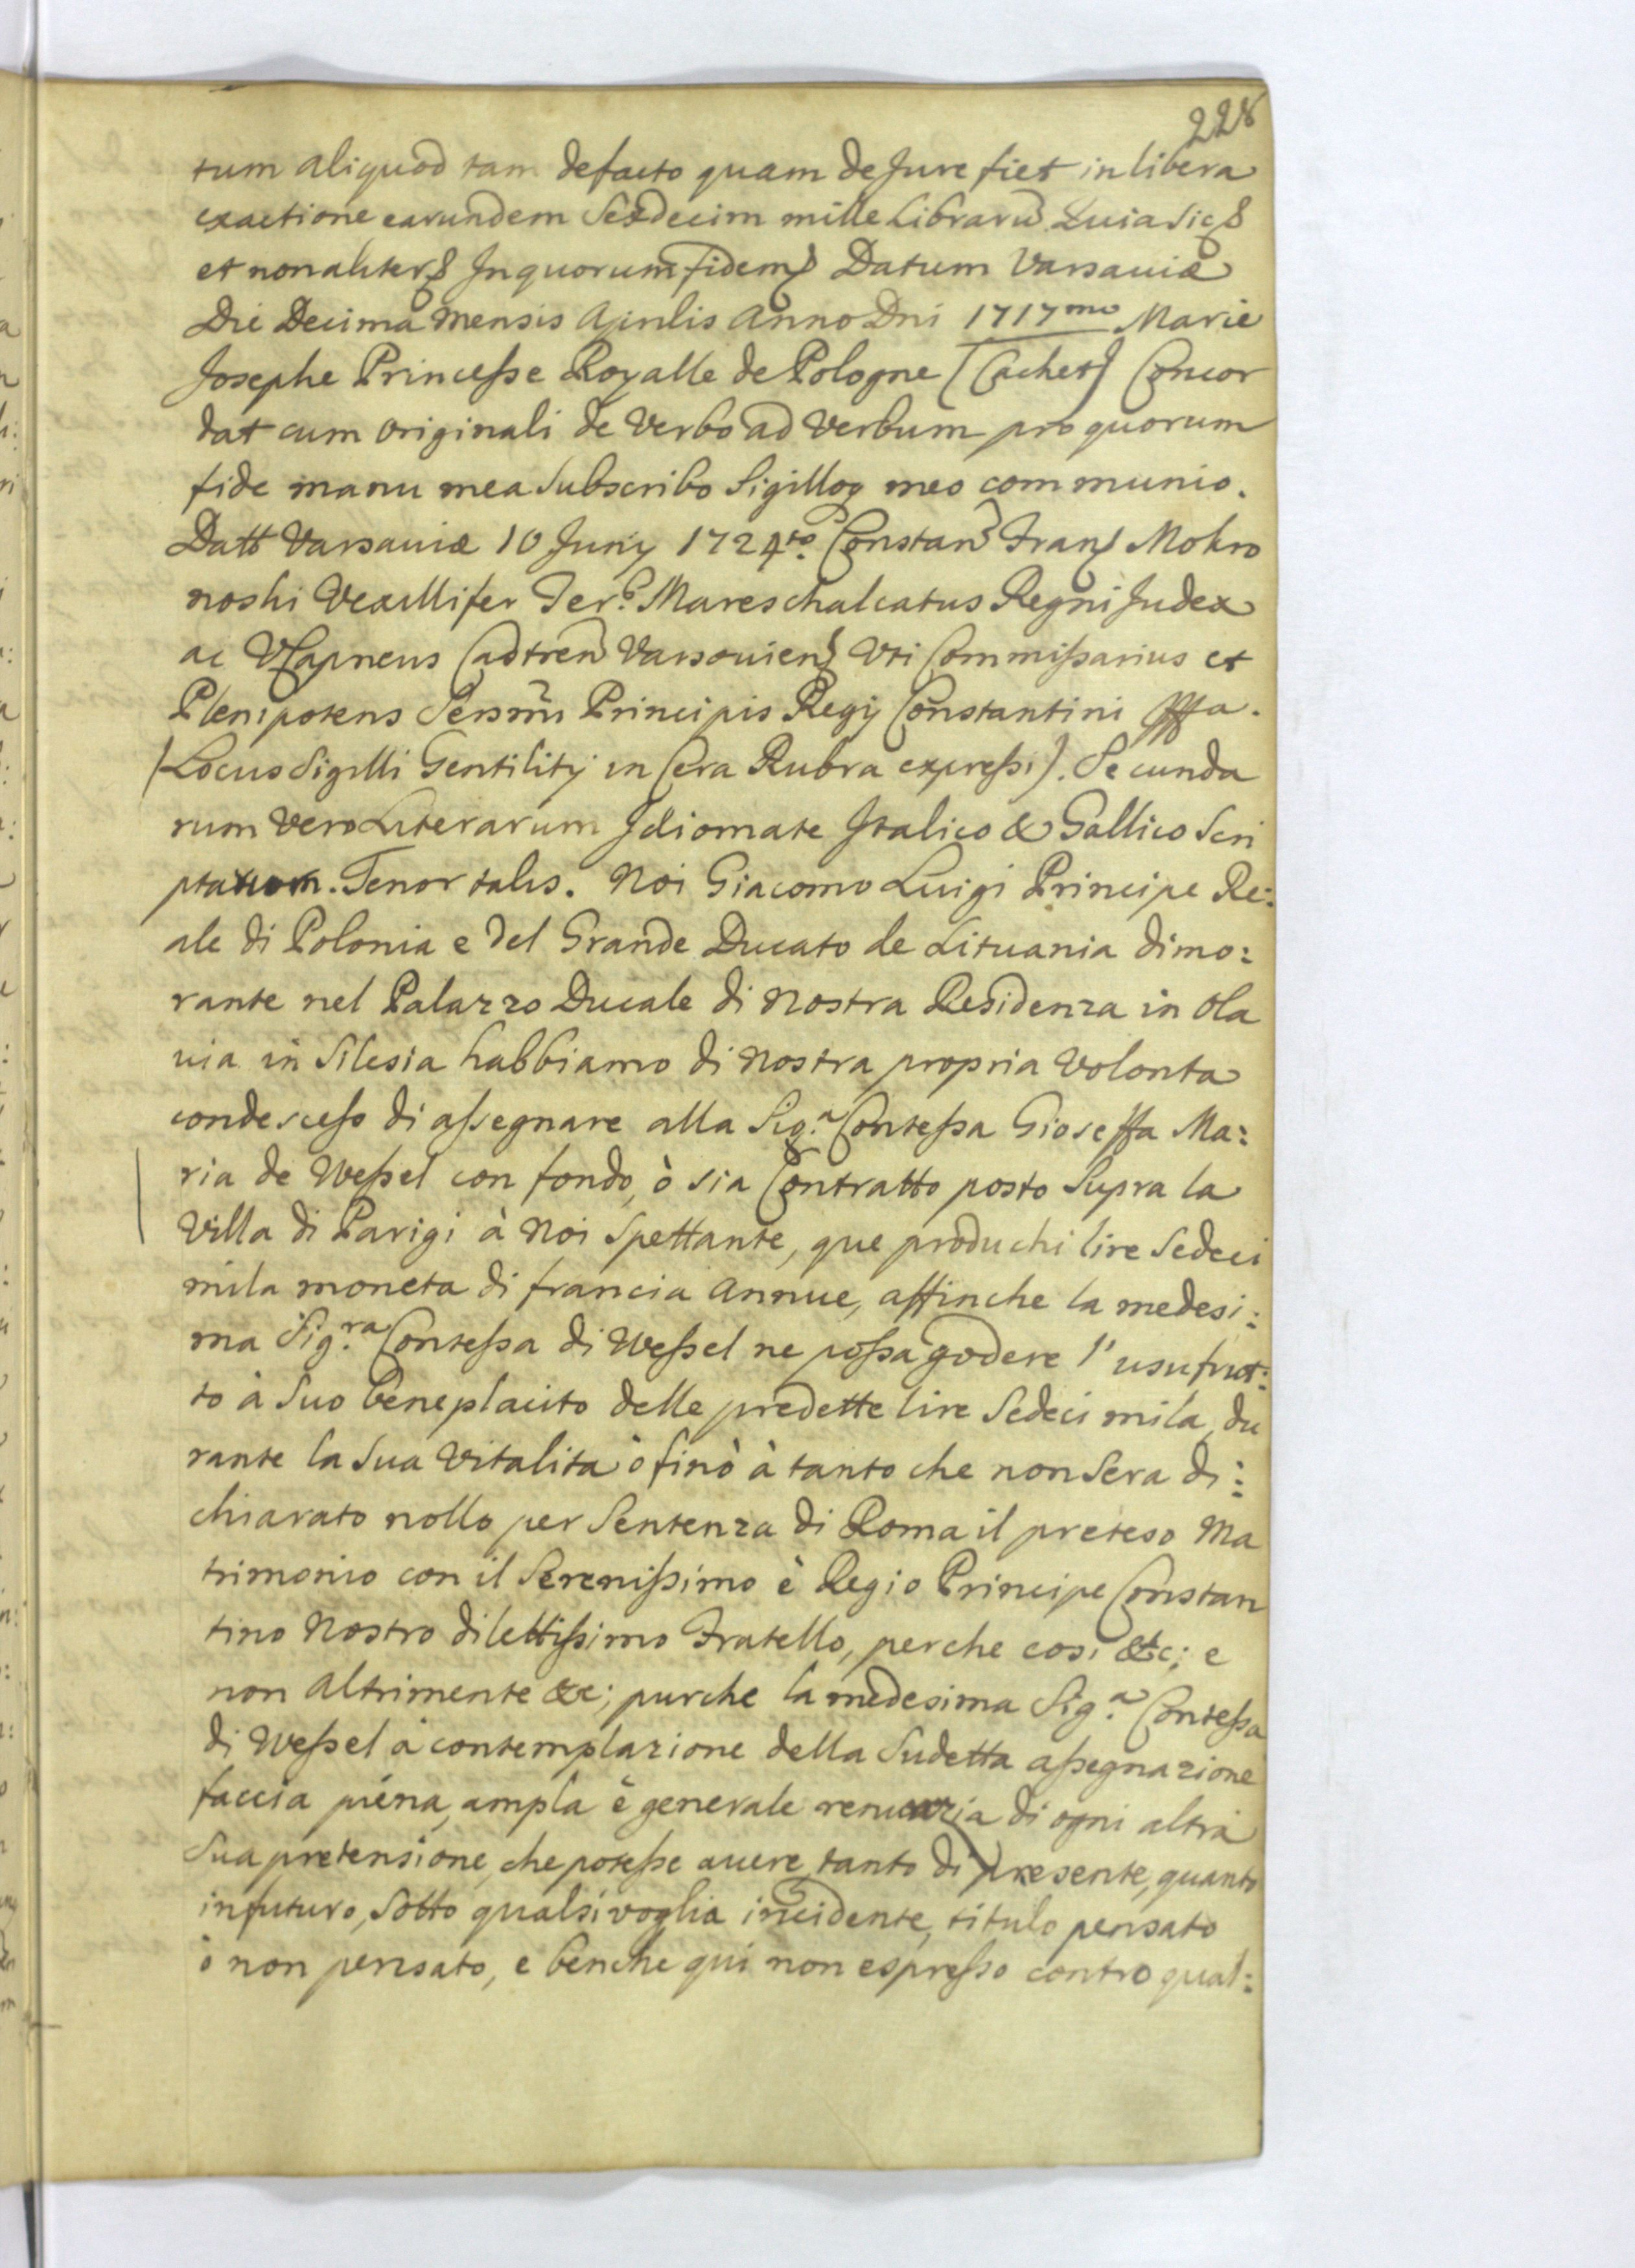 228
tum aliquod tam defacto quam de Jure fiet in libera
exactione earundem Sexdecim mille Librarū Quia Sic
et non aliter Jn quorum fidem Datum Varsauiæ
Die Decima Mensis Aprilis Anno Dni 1717mo Marie
Josephe Princesse Royalle de Pologne (Cachet) Concor
dat cum Originali de Verbo ad Verbum pro quorum
fide manu mea Subscribo Sigilloq meo communio.
Datt Varsauiæ 10 Juny 1724to Constan Fran Mokro
noski Vexillifer Ter: Mareschalcatus Regni Judex
ac VCapneus Castren Varsouien Vti Commissarius et
Plenipotens Sersmi Principis Regij Constantini
(Locus Sigilli Gentilitij in Cera Rubra expressi). Secunda
rum Vero Literarum Jdiomate Jtalico & Gallico Scri
ptarum. Tenor talis. Noi Giacomo Luigi Principe Re:
ale di Polonia e del Grande Ducato de Lituania dimo:
rante nel Palazzo Ducale di Nostra Residenza in Ola
uia in Silesia habbiamo di Nostra propria Volonta
condesceso di assegnare alla Sig.a Contessa Gioseffa Ma:
ria de Wessel con fondo, ò sia Contratto posto Supra la
Villa di Parigi à Noi Spettante, que produchi lire Sedeci
mila moneta di francia Annue, affinche la medesi:
ma Sig.ra Contessa di Wessel ne possa godere l' usufrut:
to à Suo beneplacito delle predette lire Sedeci mila, du
rante la Sua Vitalita ò finò à tanto che non Sera di:
chiarato nollo per Sentenza di Roma il preteso Ma
trimonio con il Serenissimo è Regio Principe Constan
tino Nostro dilettissimo Fratello, perche cosi &c; e
non Altrimente &c; purche la medesima Sig.a Contessa
di Wessel à contemplazione della Sudetta assegnazione
faccia piena, ampla è generale renunzia di ogni altra
Sua pretensione, che potesse auere, tanto di presente, quanto
in futuro, Sotto qualsivoglia incidente, titulo pensato
ò non pensato, e benche qui non espresso contro qual: